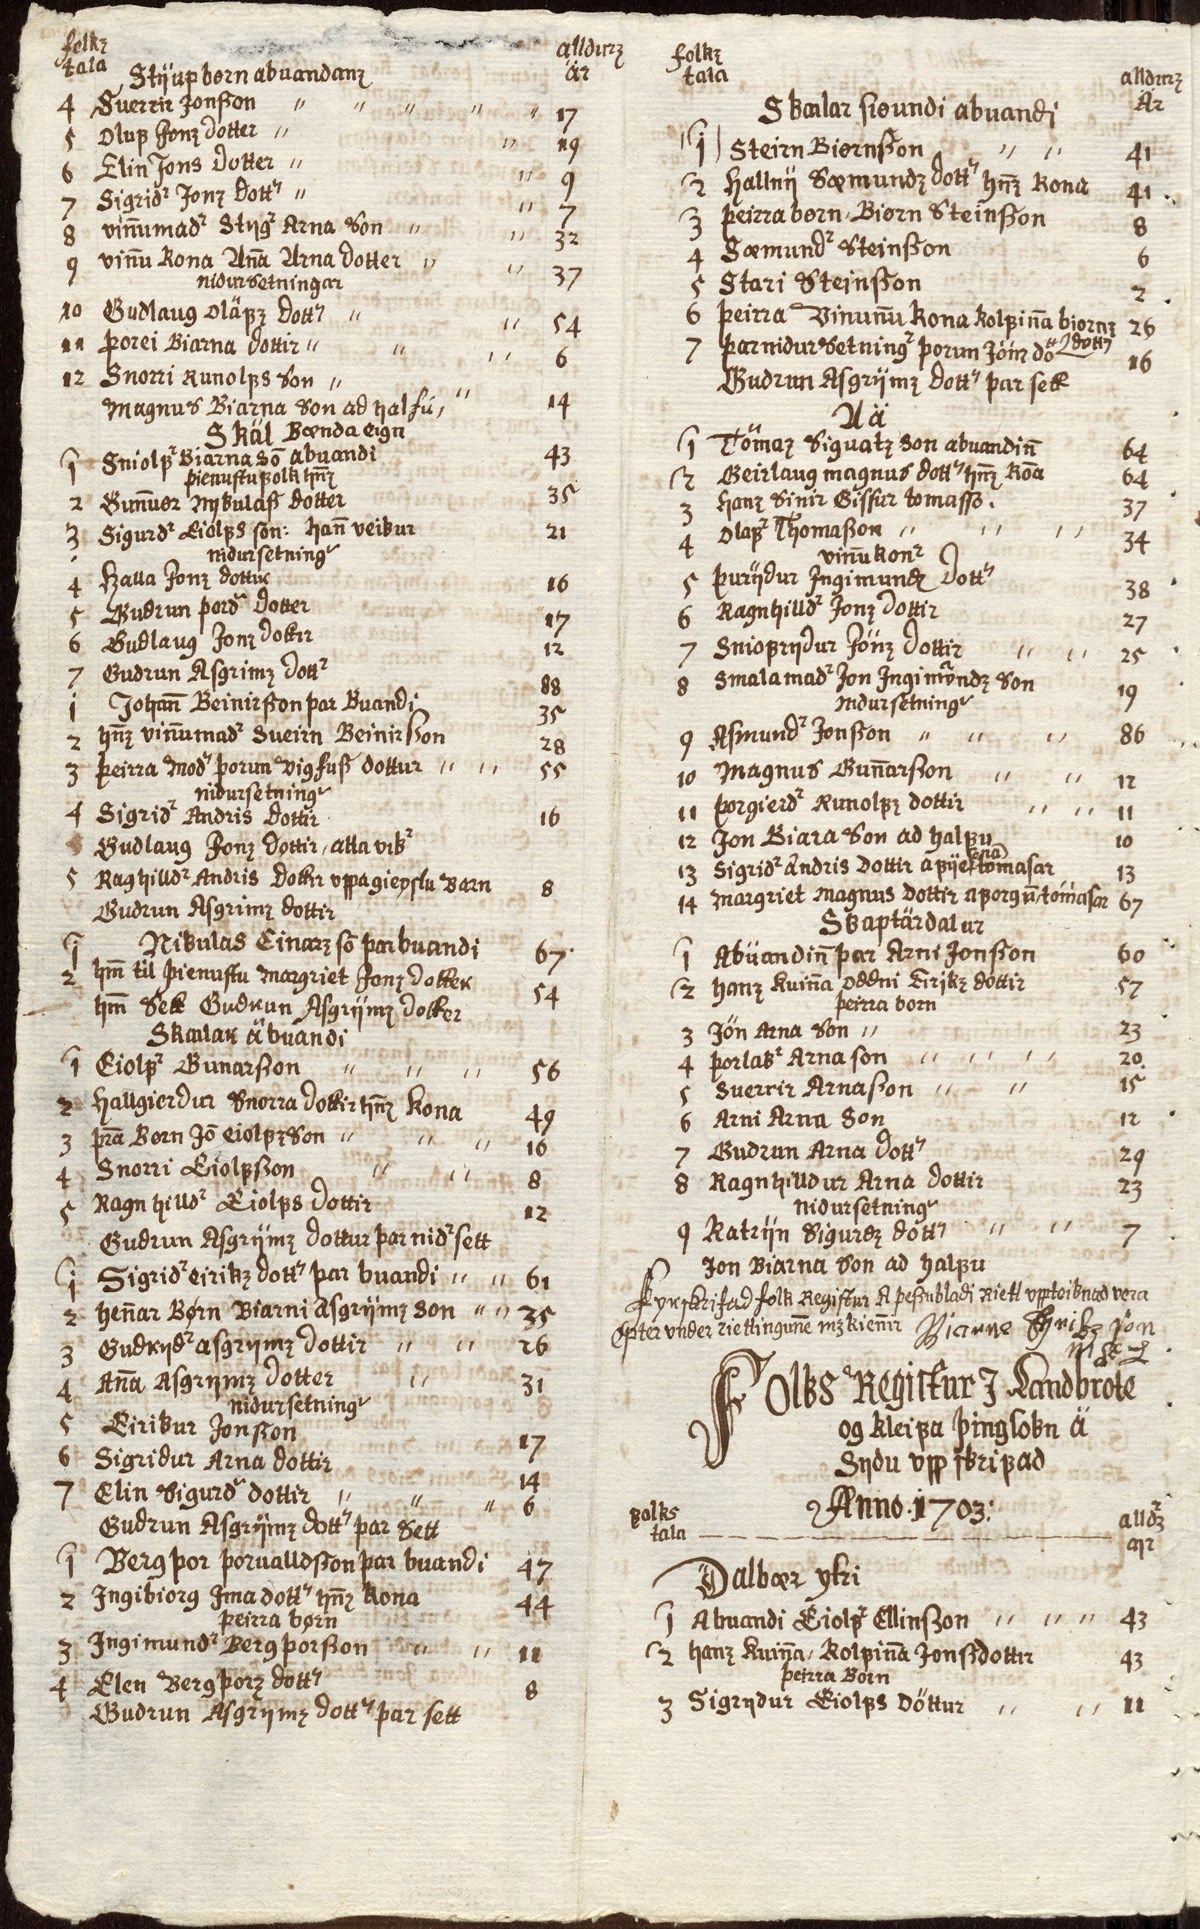 folkz tala
alldurz
är
Stÿupbørn abuandanz
4 Suerrir Jonsson 17
5 Olup Jonz dotter 19
6 Elin Jons dotter 9
7 Sigrid Jonz dott 7
8 vinnumad Styg Arna son 32
9 vinnu kona Anna Arna dotter 37
nidursetningar
10 Gudlaug Oläpz dott 54
11 Þorei Biarna dottir 6
12 Snorri Runolps son 14
Magnus Biarna son ad halfu
Skäl Bænda eign
1 Sniolp Biarna sö abuandi 43
þienustupolk hnz
2 Gunnuor Nikulass dotter 35
3 Sigurd Eiolps son: hann veikur 21
nidursetning
4 Halla Jonz dottir 16
5 Gudrun Þord dotter 17
6 Gudlaug Jonz dotter 12
7 Gudrun Asgrimz dott 88
1 Johann Beinirsson þar Buandi 35
2 hnz vinnumad Sueirn Beinirsson 28
3 þeirra mod Þorun Vigfuss dottur 55
nidursetning
4 Sigrid Andris dottir 16
Gudlaug Jonz dottir, atta vik
5 Raghilld Andris dotter uppagieyslu Barn 8
Gudrun Asgrimz dottir
1 Nikulas Einarz sö þar buandi 67
2 hm til þienustu Margriet Jonz dotter 54
hm sett Gudrun Asgrijmz dotter
Skalar ä buandi
1 Eiolp Gunarsson 56
2 Hallgierdur Snorra dottir hnz kona 49
3 þra Børn Jö Eiolpz son 16
4 Snorri Eiolpsson 8
5 Ragnhilld Eiolps dottir 12
Gudrun Asgrijmz dottur þar nid sett
1 Sigrid eirikz dott þar buandi 61
2 hennar Børn Biarni Asgrijmz son 35
3 Gudrijd asgrijmz dottir 26
4 Anna Asgrijmz dotter 31
nidursetning
5 Eirikur Jonsson 17
6 Sigridur Arna dottir 14
7 Elin Sigurd dottir 6
Gudrun Asgrijmz dott þar sett
1 Bergþor Þorualldsson þar buandi 47
2 Ingibiorg Jma dott hnz kona 44
þeirra børn
3 Ingimund Bergþorsson 11
4 Elen Bergþorz dott 8
Gudrun Asgrijmz dott þar sett
folkz tala
alldurz
Ar
Skalar siøundi abuandi
1 Steirn Biørnsson 41
2 Hallnÿ Sæmundz dott hnz kona 41
3 þeirra børn, Biørn Steinsson 8
4 Sæmund Steinsson 6
5 Stari Steinsson 2
6 þeirra Vinunnu kona kolpinna biornz dott 26
7 þar nidursetning Þorun Jönz dö 16
Gudrun Asgrijmz dott þar sett
Aä
1 Tömaz Siguatz son abuandinn 64
2 Geirlaug magnus dott hnz kona 64
3 hanz sinir Gissur tomasso. 37
4 Olap Thomasson 34
vinnukon
5 Þurijdur Ingimundz Dott 38
6 Ragnhilld Jonz dottir 27
7 Sniopzijdur Jönz dottir 25
8 Smalamad Jon Ingimundz son 19
nidursetning
9 Asmund Jonsson 86
10 Magnus Gunnarsson 12
11 Þorgierd Runolpz dottir 11
12 Jon Biara son ad halpu 10
13 Sigrid Andris dottir tomasar 13
14 Margriet Magnus dottir tomasar 67
Skaptärdalur
1 Abüandinn þar Arni Jonsson 60
2 hanz kuinna Oddni Eirikz dottir 57
þeirra born
3 Jön Arna son 23
4 Þorlak Arna son 20
5 Suerrir Arnasson 15
6 Arni Arna son 12
7 Gudrun Arna dott 29
8 Ragnhilldur Arna dottir 23
nidursetning
9 Katrijn Sigurdz dott 7
Jon Biarna son ad halpu
Fyrskrifad folk Registur A þessu bladi Riett uppteiknad vera
epter under riettingunne mz kienir Biarne Eyrikz Jön
Folks Registur J Landbrote
og kleipa þingsokn ä
Sijdu upp skripad
Anno: 1703:
polks tala
alldz
ayr
Dalbær ytri
1 Abuandi Eiolp Ellinsson 43
2 hanz kuinna, Kolpinna Jonssdottir 43
þeirra Born
3 Sigrijdur Eiolps döttur 11